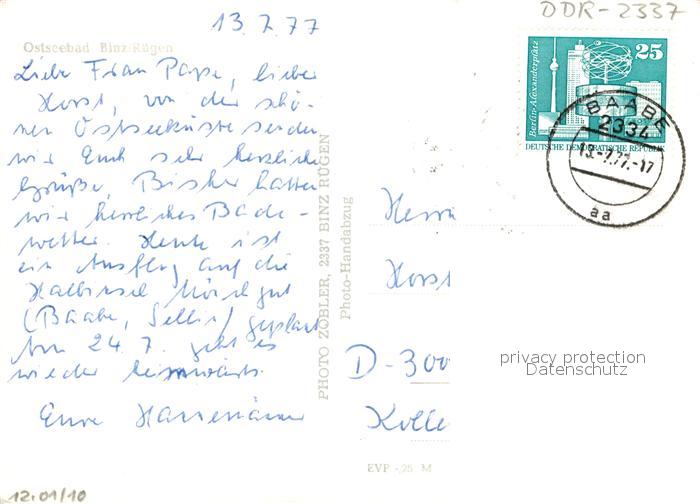 13.7.77
DDR-2337
Ostseebad Binz/Rügen
Liebe Frau Pappe, lieber
Horst, von der schö-
nen Ostseeküste senden
wir Euch sehr herzliche
Grüße. Bisher hatten
wir herrliches Bade-
wetter. Heute ist
ein Ausflug auf die
Halbinsel Mönchgut
(Baabe, Sellin) geplant
Am 24.7. geht es
wieder heimwärts.
Eure
PHOTO ZOBLER, 2337 BINZ RÜGEN
Photo-Handabzug
Berlin-Alexanderplatz
25
DEUTSCHE DEMOKRATISCHE REPUBLIK
BAABE
2334
13.-7.77.-17
aa
Herrn
Horst
D-300
Kolle
privacy protection
Datenschutz
EVP -,25 M
12.01/10